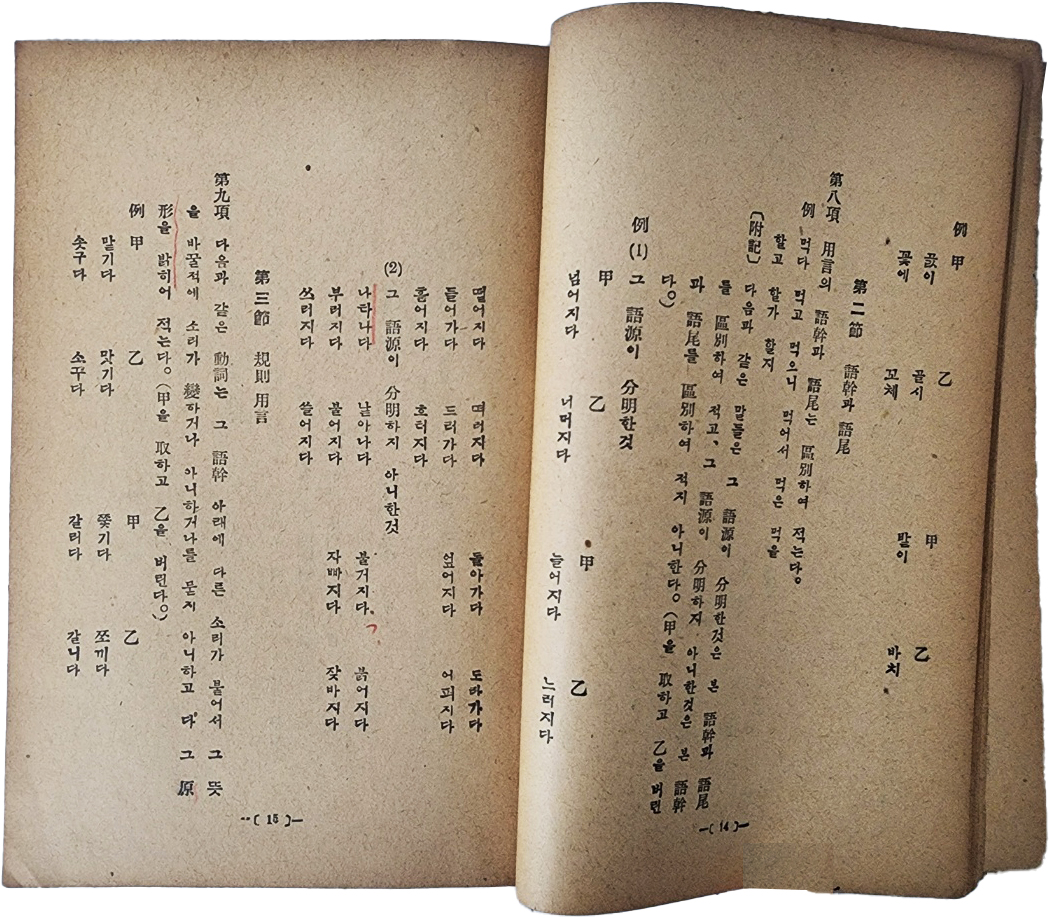 例 甲 乙 甲 乙
곬이 골시 밭이 바치
꽃에 꼬체
第二節 語幹과 語尾
第八項 用言의 語幹과 語尾는 區別하여 적는다。
例 먹다 먹고 먹으니 먹어서 먹은 먹을
할고 할가 할지
〔附記〕 다음과 같은 말들은 그 語源이 分明한것은 본 語幹과 語尾
를 區別하여 적고、그 語源이 分明하지 아니한것은 본 語幹
과 語尾를 區別하여 적지 아니한다。(甲을 取하고 乙을 버린
다。)
例 (1) 그 語源이 分明한것
甲 乙 甲 乙
넘어지다 너머지다 늘어지다 느러지다
—( 14 )—
떨어지다 떠러지다 돌아가다 도라가다
들어가다 드러가다 엎어지다 어퍼지다
흩어지다 흐터지다
(2) 그 語源이 分明하지 아니한것
나타나다 낱아나다 불거지다 붉어지다
부러지다 불어지다 자빠지다 잦바지다
쓰러지다 쓸어지다
第三節 規則用言
第九項 다음과 같은 動詞는 그 語幹 아래에 다른 소리가 붙어서 그 뜻
을 바꿀적에 소리가 變하거나 아니하거나를 묻지 아니하고 다 그 原
形을 밝히어 적는다。(甲을 取하고 乙을 버린다。)
例 甲 乙 甲 乙
맡기다 맛기다 쫓기다 쪼끼다
솟구다 소꾸다 갈리다 갈니다
—( 15 )—